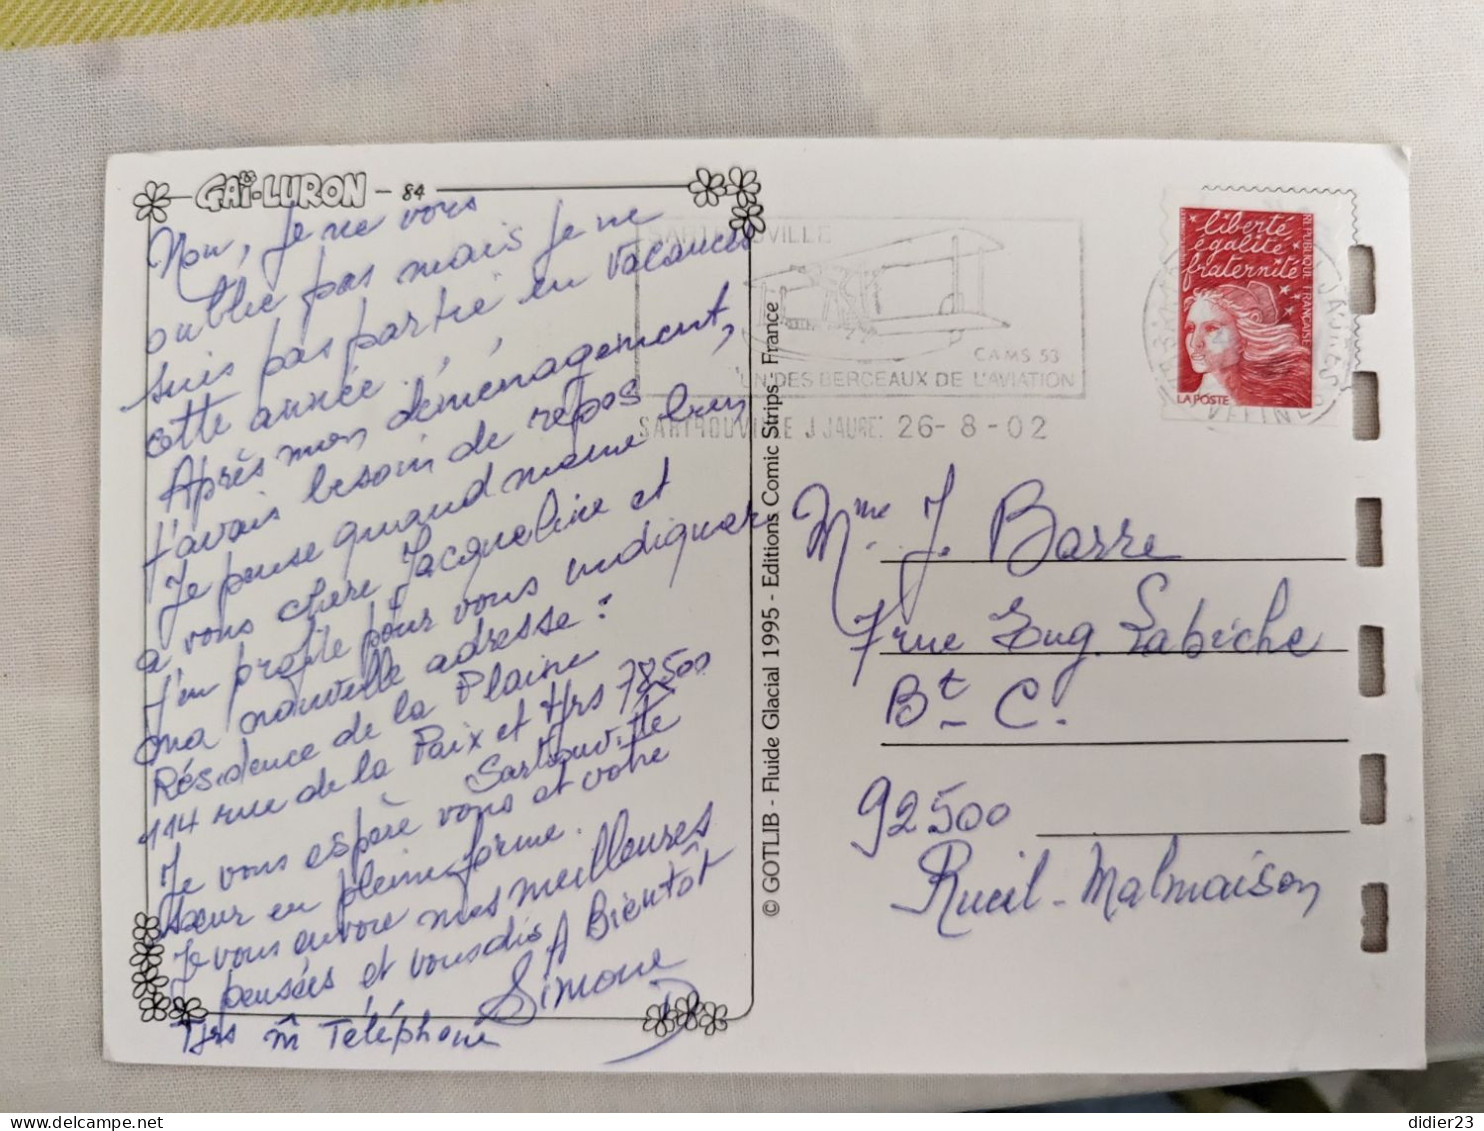 GAÏ-LURON - 84
Non, je ne vous
oublie pas mais je ne
suis pas partie en vacances
cette année !
Après mon déménagement,
j'avais besoin de repos
Je pense quand même bien
à vous chère Jacqueline et
j'en profite pour vous indiquer
ma nouvelle adresse :
Résidence de la Plaine
114 rue de la Paix et Hrs 78500
Sartrouville
Je vous espère vous et votre
sœur en pleine forme.
Je vous envoie mes meilleures
pensées et vous dis A Bientôt
Simone
Hrs m̂ Téléphone
© GOTLIB - Fluide Glacial 1995 - Editions Comic Strips - France
SARTROUVILLE
CAMS 53
UN DES BERCEAUX DE L'AVIATION
SARTROUVILLE J JAURES 26-8-02
liberté
égalité
fraternité
REPUBLIQUE FRANÇAISE
LA POSTE
J. JAURES
YVELINES
Mme J. Barre
7 rue Eug. Labiche
Bt C.
92500
Rueil-Malmaison
didier23